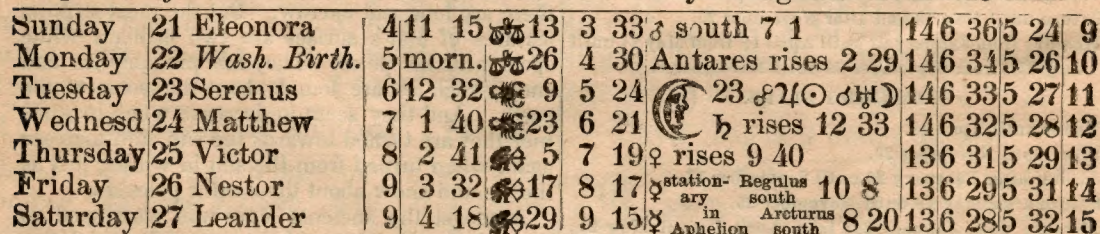 Sunday 21 Eleonora 4 11 15 ♎ 13 3 33 ♂ south 7 1 14 6 36 5 24 9
Monday 22 Wash. Birth. 5 morn. ♎ 26 4 30 Antares rises 2 29 14 6 34 5 26 10
Tuesday 23 Serenus 6 12 32 9 5 24 ☾ 23 ☍♃☉ ☌♅☽ 14 6 33 5 27 11
Wednesd 24 Matthew 7 1 40 23 6 21 ♄ rises 12 33 14 6 32 5 28 12
Thursday 25 Victor 8 2 41 5 7 19 ♀ rises 9 40 13 6 31 5 29 13
Friday 26 Nestor 9 3 32 17 8 17 ☿ station- ary Regulus south 10 8 13 6 29 5 31 14
Saturday 27 Leander 9 4 18 29 9 15 ☿ in Aphelion Arcturus south 8 20 13 6 28 5 32 15